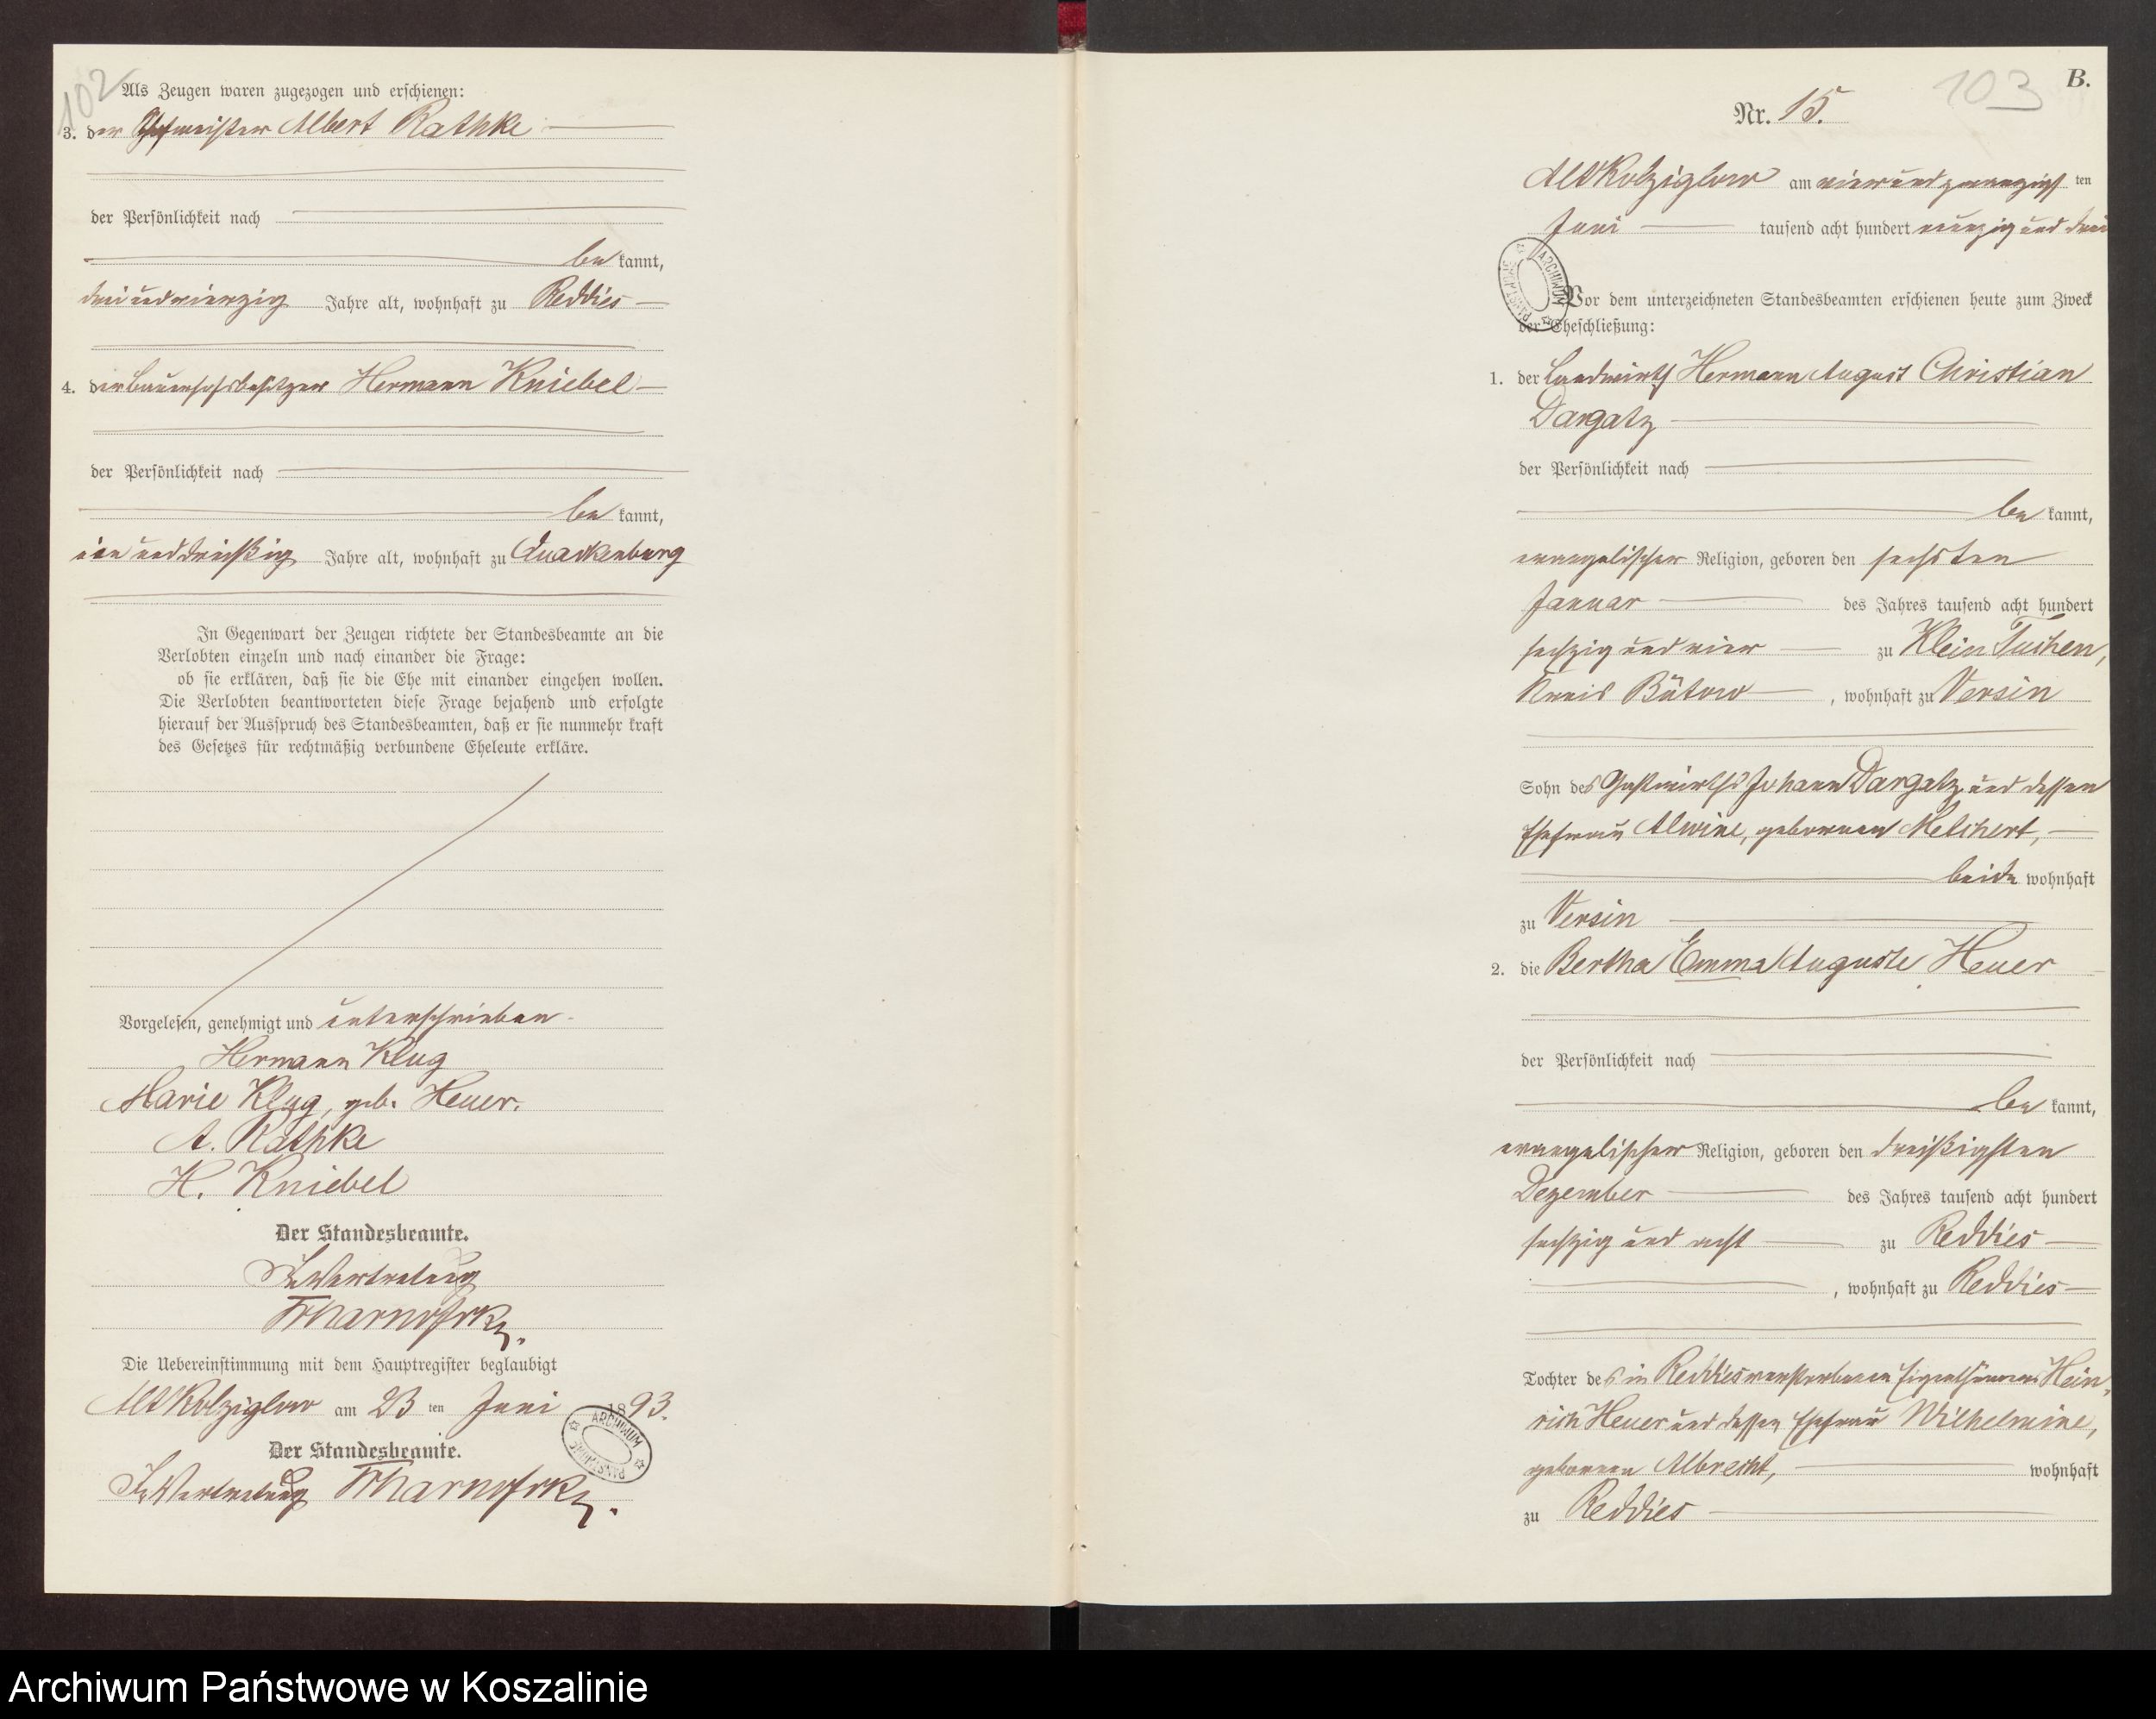 102
Als Zeugen waren zugezogen und erschienen:
3. der Hofmeister Albert Rathke
der Persönlichkeit nach
be kannt,
dreiundvierzig Jahre alt, wohnhaft zu Reddies
4. der Bauerhofsbesitzer Hermann Kniebel
der Persönlichkeit nach
be kannt,
ein und dreißig Jahre alt, wohnhaft zu Quackenburg
In Gegenwart der Zeugen richtete der Standesbeamte an die
Verlobten einzeln und nach einander die Frage:
ob sie erklären, daß sie die Ehe mit einander eingehen wollen.
Die Verlobten beantworteten diese Frage bejahend und erfolgte
hierauf der Ausspruch des Standesbeamten, daß er sie nunmehr kraft
des Gesetzes für rechtmäßig verbundene Eheleute erkläre.
Vorgelesen, genehmigt und unterschrieben
Hermann Klug
Marie Klug, geb. Heuer.
A. Rathke
H. Kniebel
Der Standesbeamte.
In Vertretung
Die Uebereinstimmung mit dem Hauptregister beglaubigt
Alt Kolziglow am 23 ten Juni 1893.
Der Standesbeamte.
In Vertretung
ARCHIWUM PAŃSTWOWE
103
B.
Nr. 15.
Alt Kolziglow am vierundzwanzigs ten
Juni tausend acht hundert neunzig und drei
ARCHIWUM PAŃSTWOWE
Vor dem unterzeichneten Standesbeamten erschienen heute zum Zweck
der Eheschließung:
1. der Landwirth Hermann August Christian
Dargatz
der Persönlichkeit nach
be kannt,
evangelischer Religion, geboren den sechsten
Januar des Jahres tausend acht hundert
sechzig und vier zu Klein Tuchen,
Kreis Bütow, wohnhaft zu Versin
Sohn des Gastwirths Johann Dargatz und dessen
Ehefrau Alwine, geborenen Melchert,
beide wohnhaft
zu Versin
2. die Bertha Emma Auguste Heuer
der Persönlichkeit nach
be kannt,
evangelischer Religion, geboren den dreißigsten
Dezember des Jahres tausend acht hundert
sechzig und acht zu Reddies
, wohnhaft zu Reddies
Tochter des in Reddies verstorbenen Eigenthümers Hein-
rich Heuer und dessen Ehefrau Wilhelmine,
geborenen Albrecht, wohnhaft
zu Reddies
Archiwum Państwowe w Koszalinie